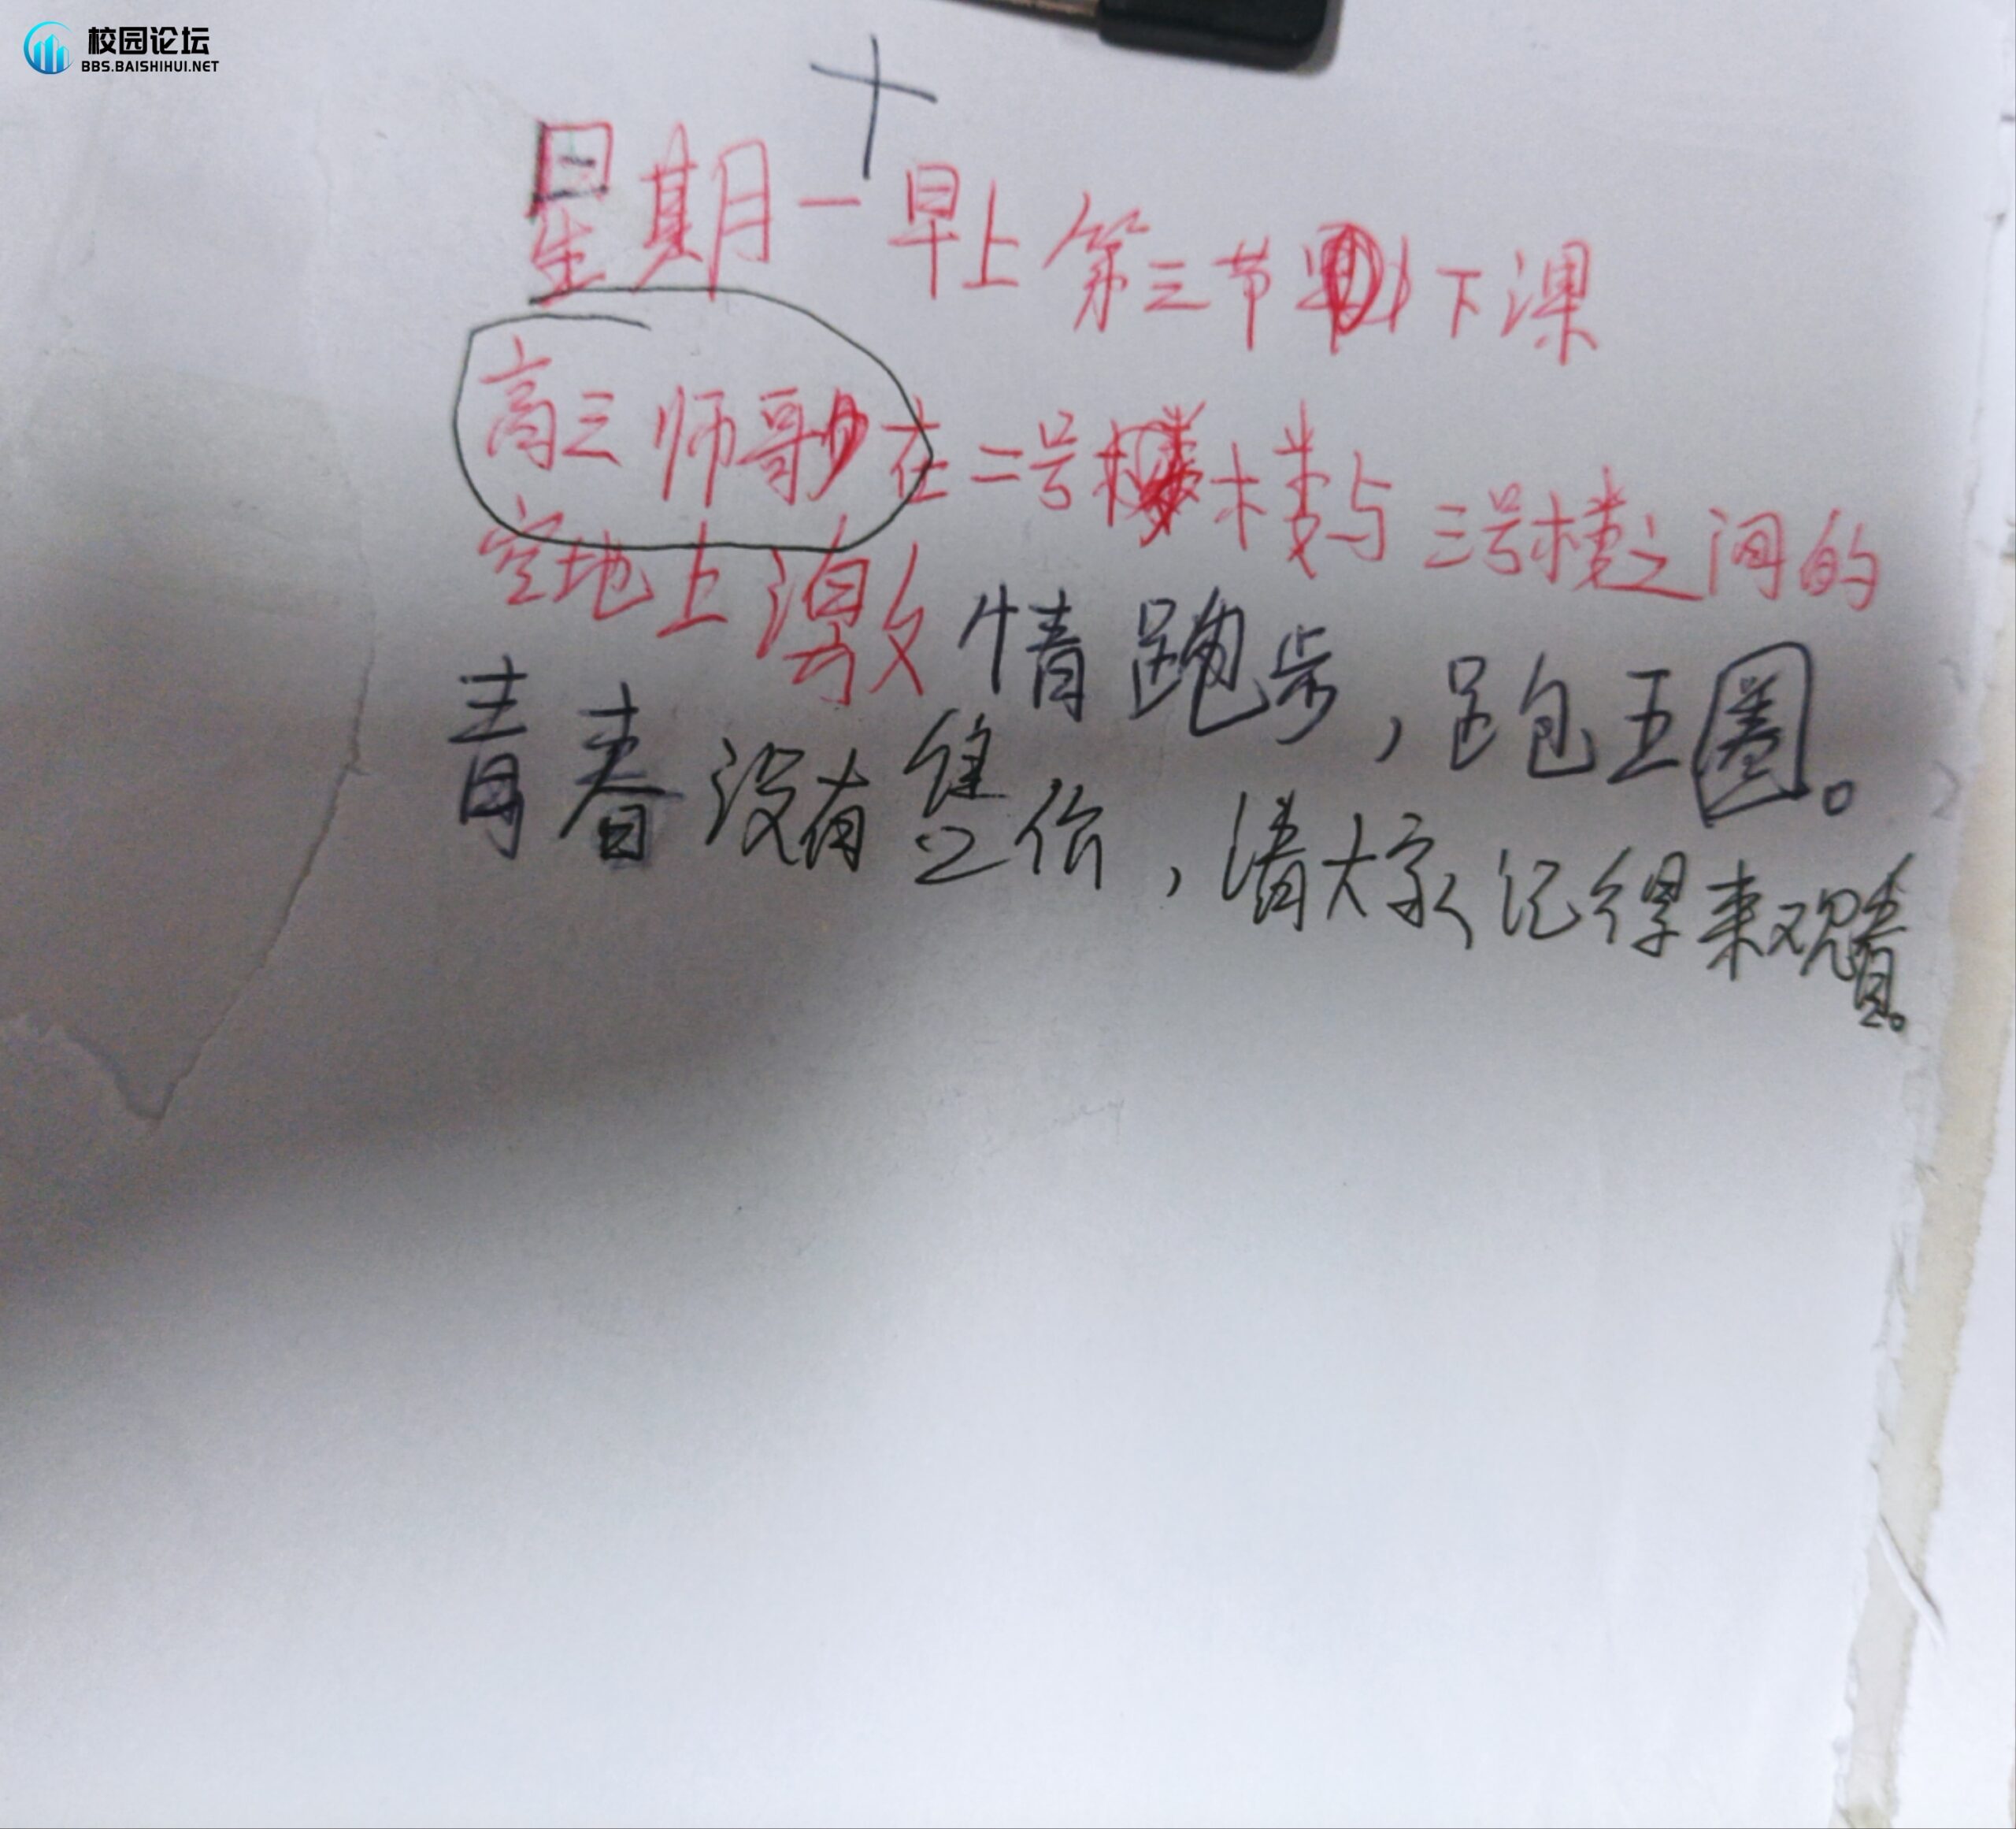 校园论坛
BBS.BAISHIHUI.NET
十
星期一早上第三节下课
高三师哥在二号楼与三号楼之间的
空地上激情跑步，跑五圈。
青春没有售价，请大家记得来观看。